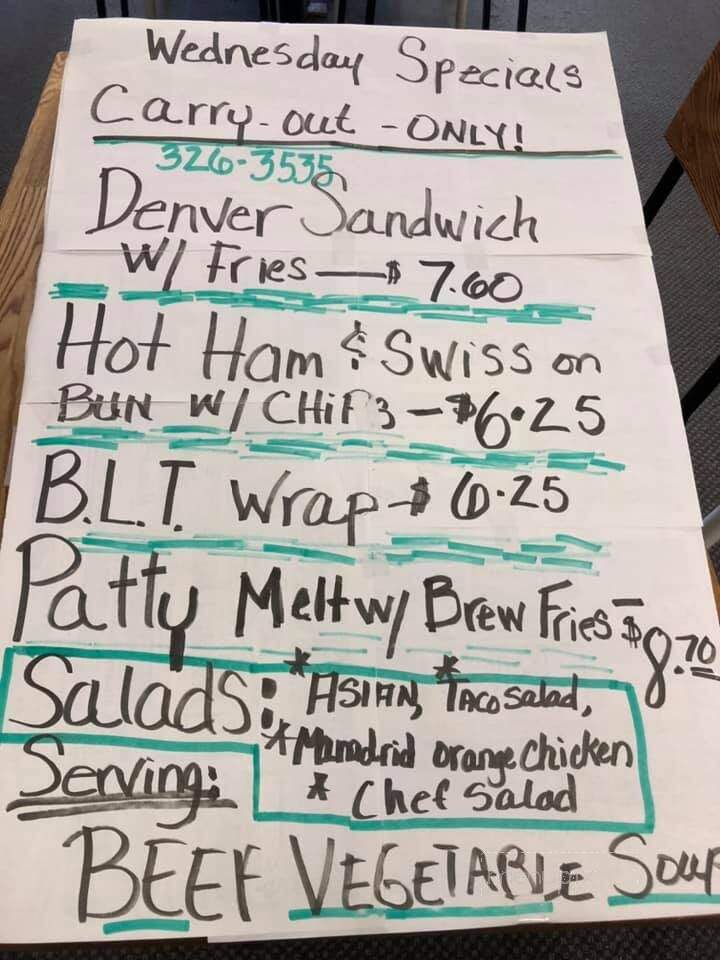 Wednesday Specials
Carry-out - ONLY!
326-3535
Denver Sandwich
W/ Fries — $ 7.60
Hot Ham & Swiss on
BUN W/ CHIPS - $6.25
B.L.T. Wrap - $ 6.25
Patty Melt w/ Brew Fries - $8.70
Salads: * ASIAN, * Taco Salad,
* Manadrid orange Chicken
* Chef Salad
Serving:
BEEF VEGETABLE Soup